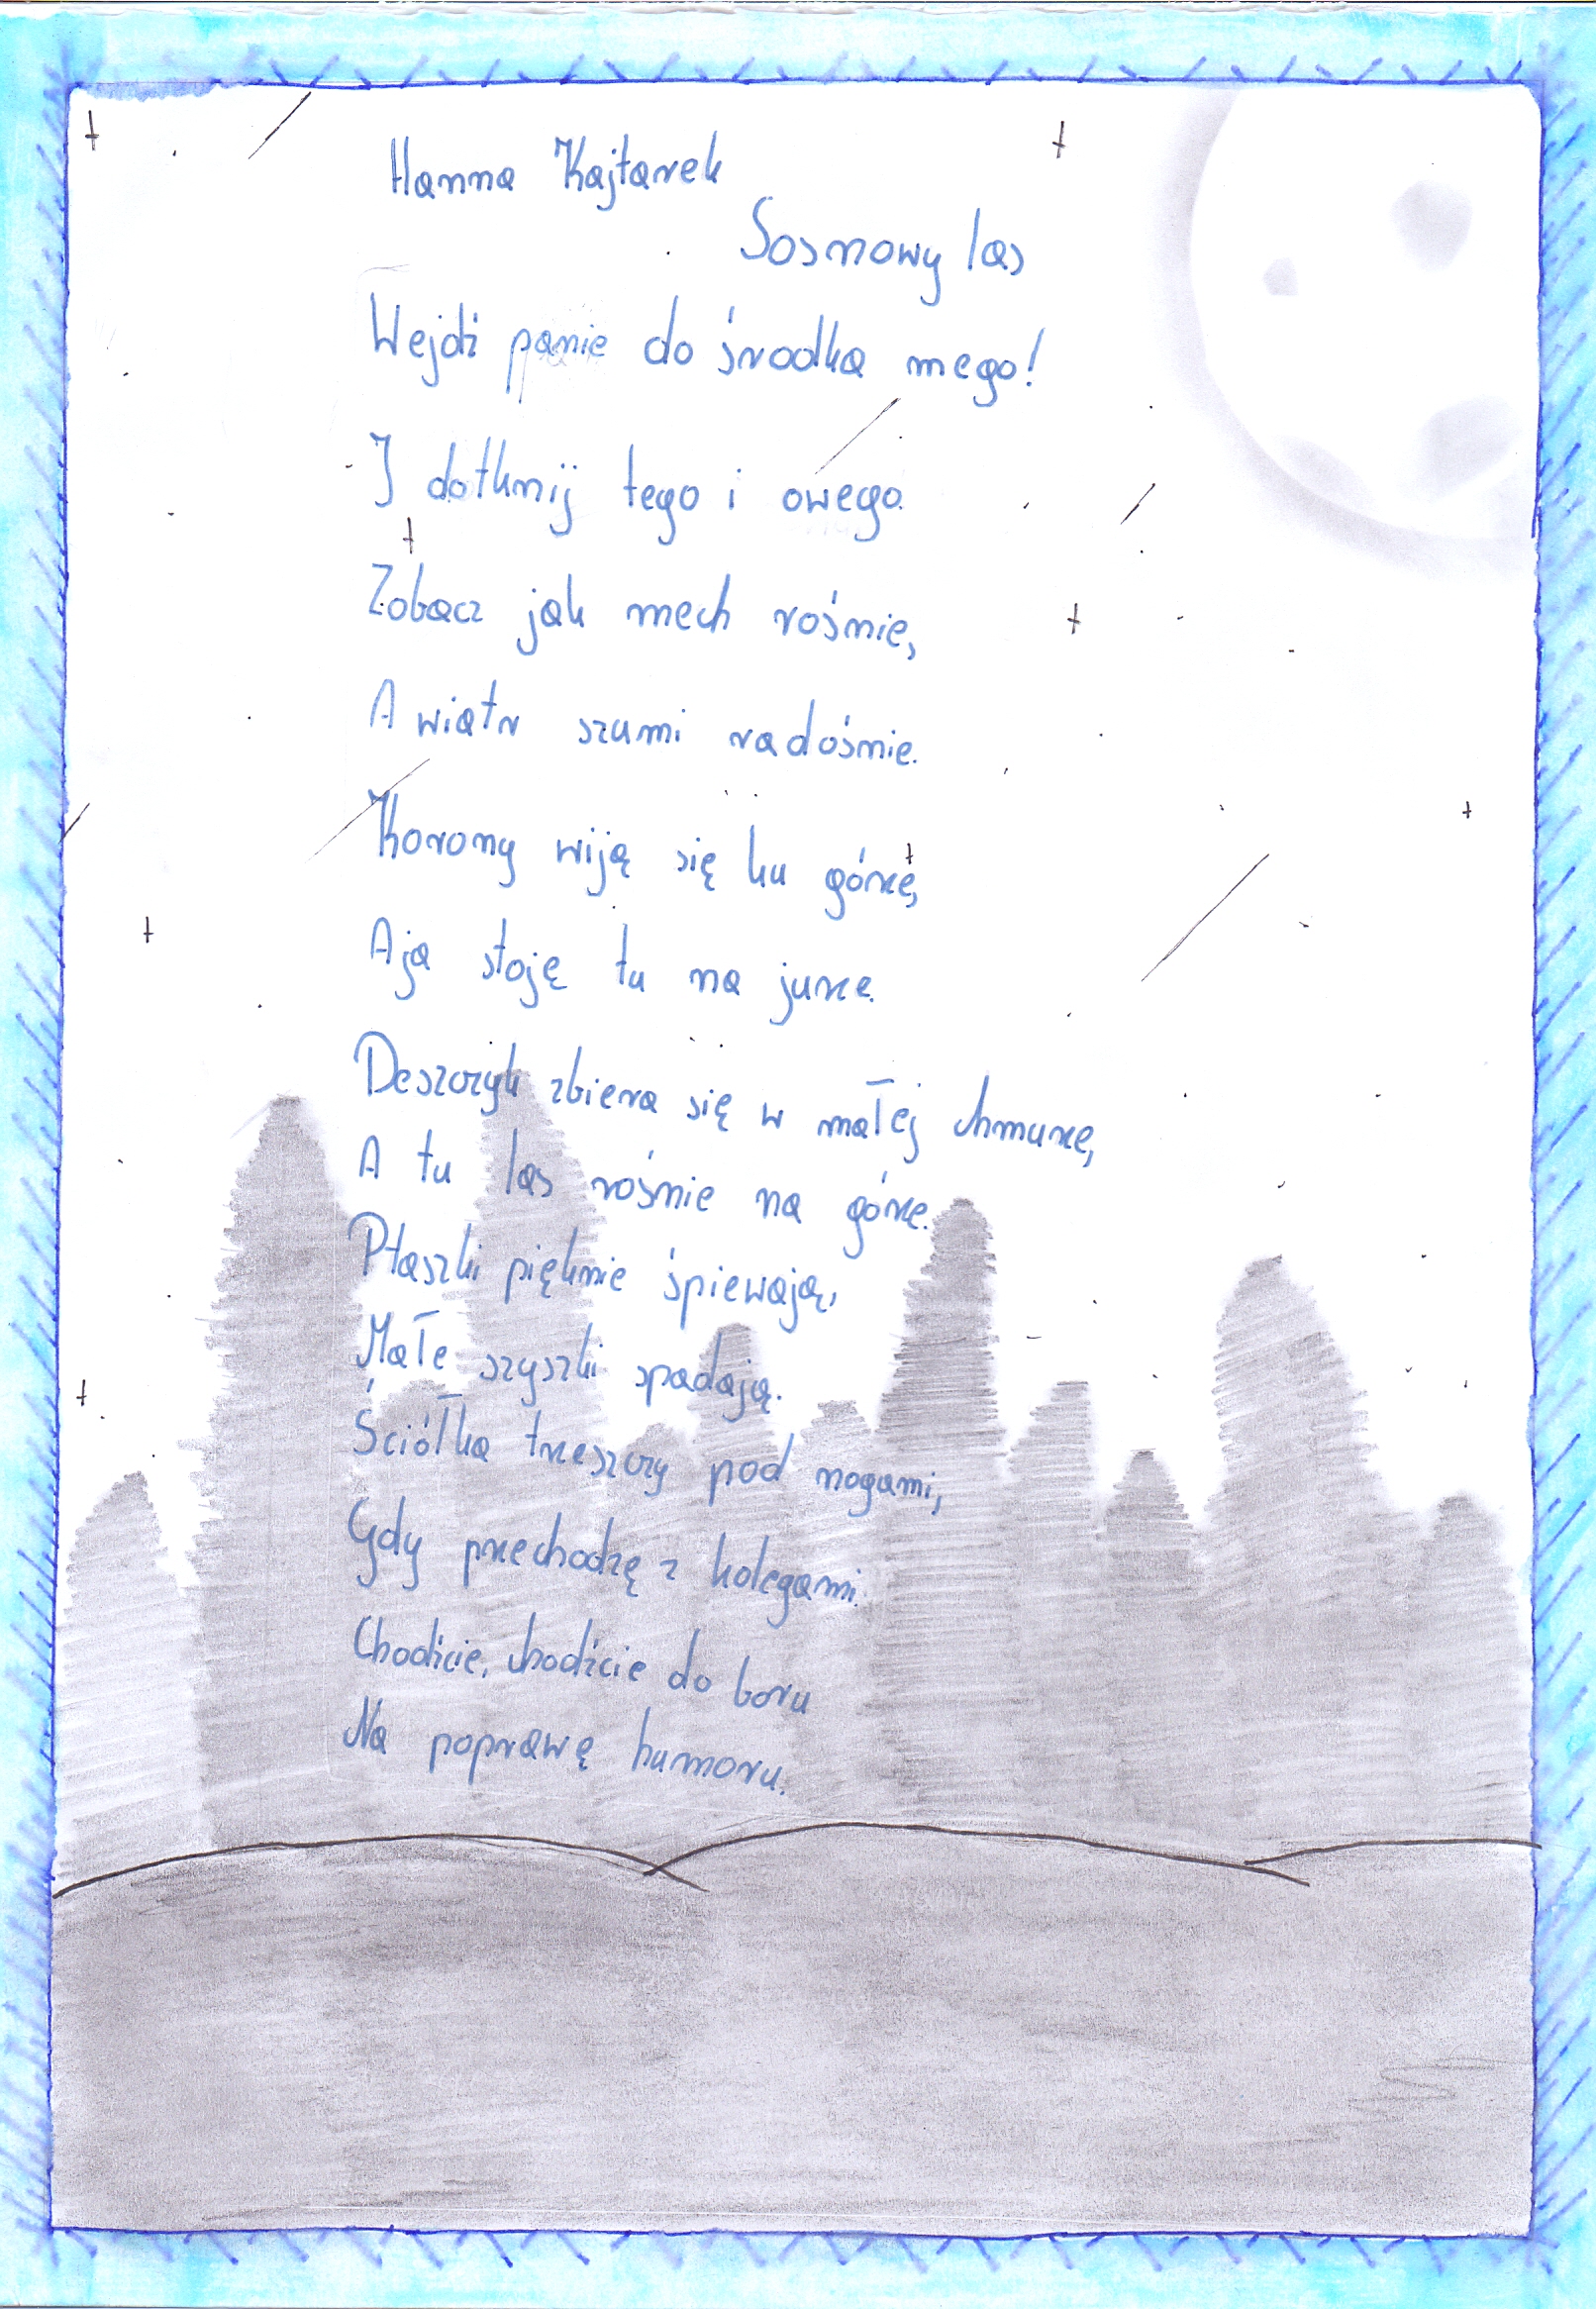 Hanna Kajtarek
Sosnowy las
Wejdź panie do środka mego!
I dotknij tego i owego.
Zobacz jak mech rośnie,
A wiatr szumi radośnie.
Korony wiją się ku górze,
A ja stoję tu na jurze.
Deszczyk zbiera się w małej chmurze,
A tu las rośnie na górze.
Ptaszki pięknie śpiewają,
Małe szyszki spadają.
Ściółka trzeszczy pod nogami,
Gdy przechodzę z kolegami.
Chodźcie, chodźcie do boru
Na poprawę humoru.